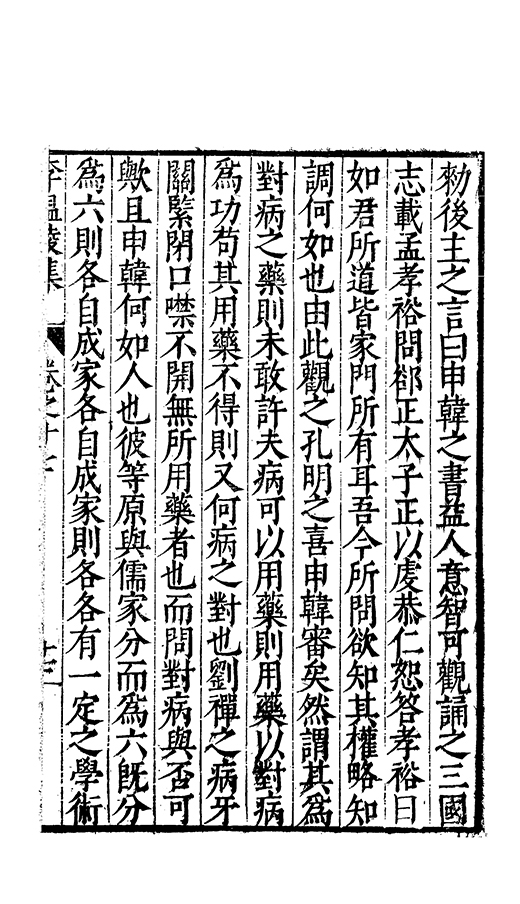 勑後主之言曰申韓之書益人意智可觀誦之三國
志載孟孝裕問郤正太子正以虔恭仁恕答孝裕曰
如君所道皆家門所有耳吾今所問欲知其權略知
調何如也由此觀之孔明之喜申韓審矣然謂其爲
對病之藥則未敢許夫病可以用藥則用藥以對病
爲功苟其用藥不得則又何病之對也劉禪之病牙
關緊閉口噤不開無所用藥者也而問對病與否可
歟且申韓何如人也彼等原與儒家分而爲六旣分
爲六則各自成家各自成家則各各有一定之學術
李溫陵集
卷之十
十三